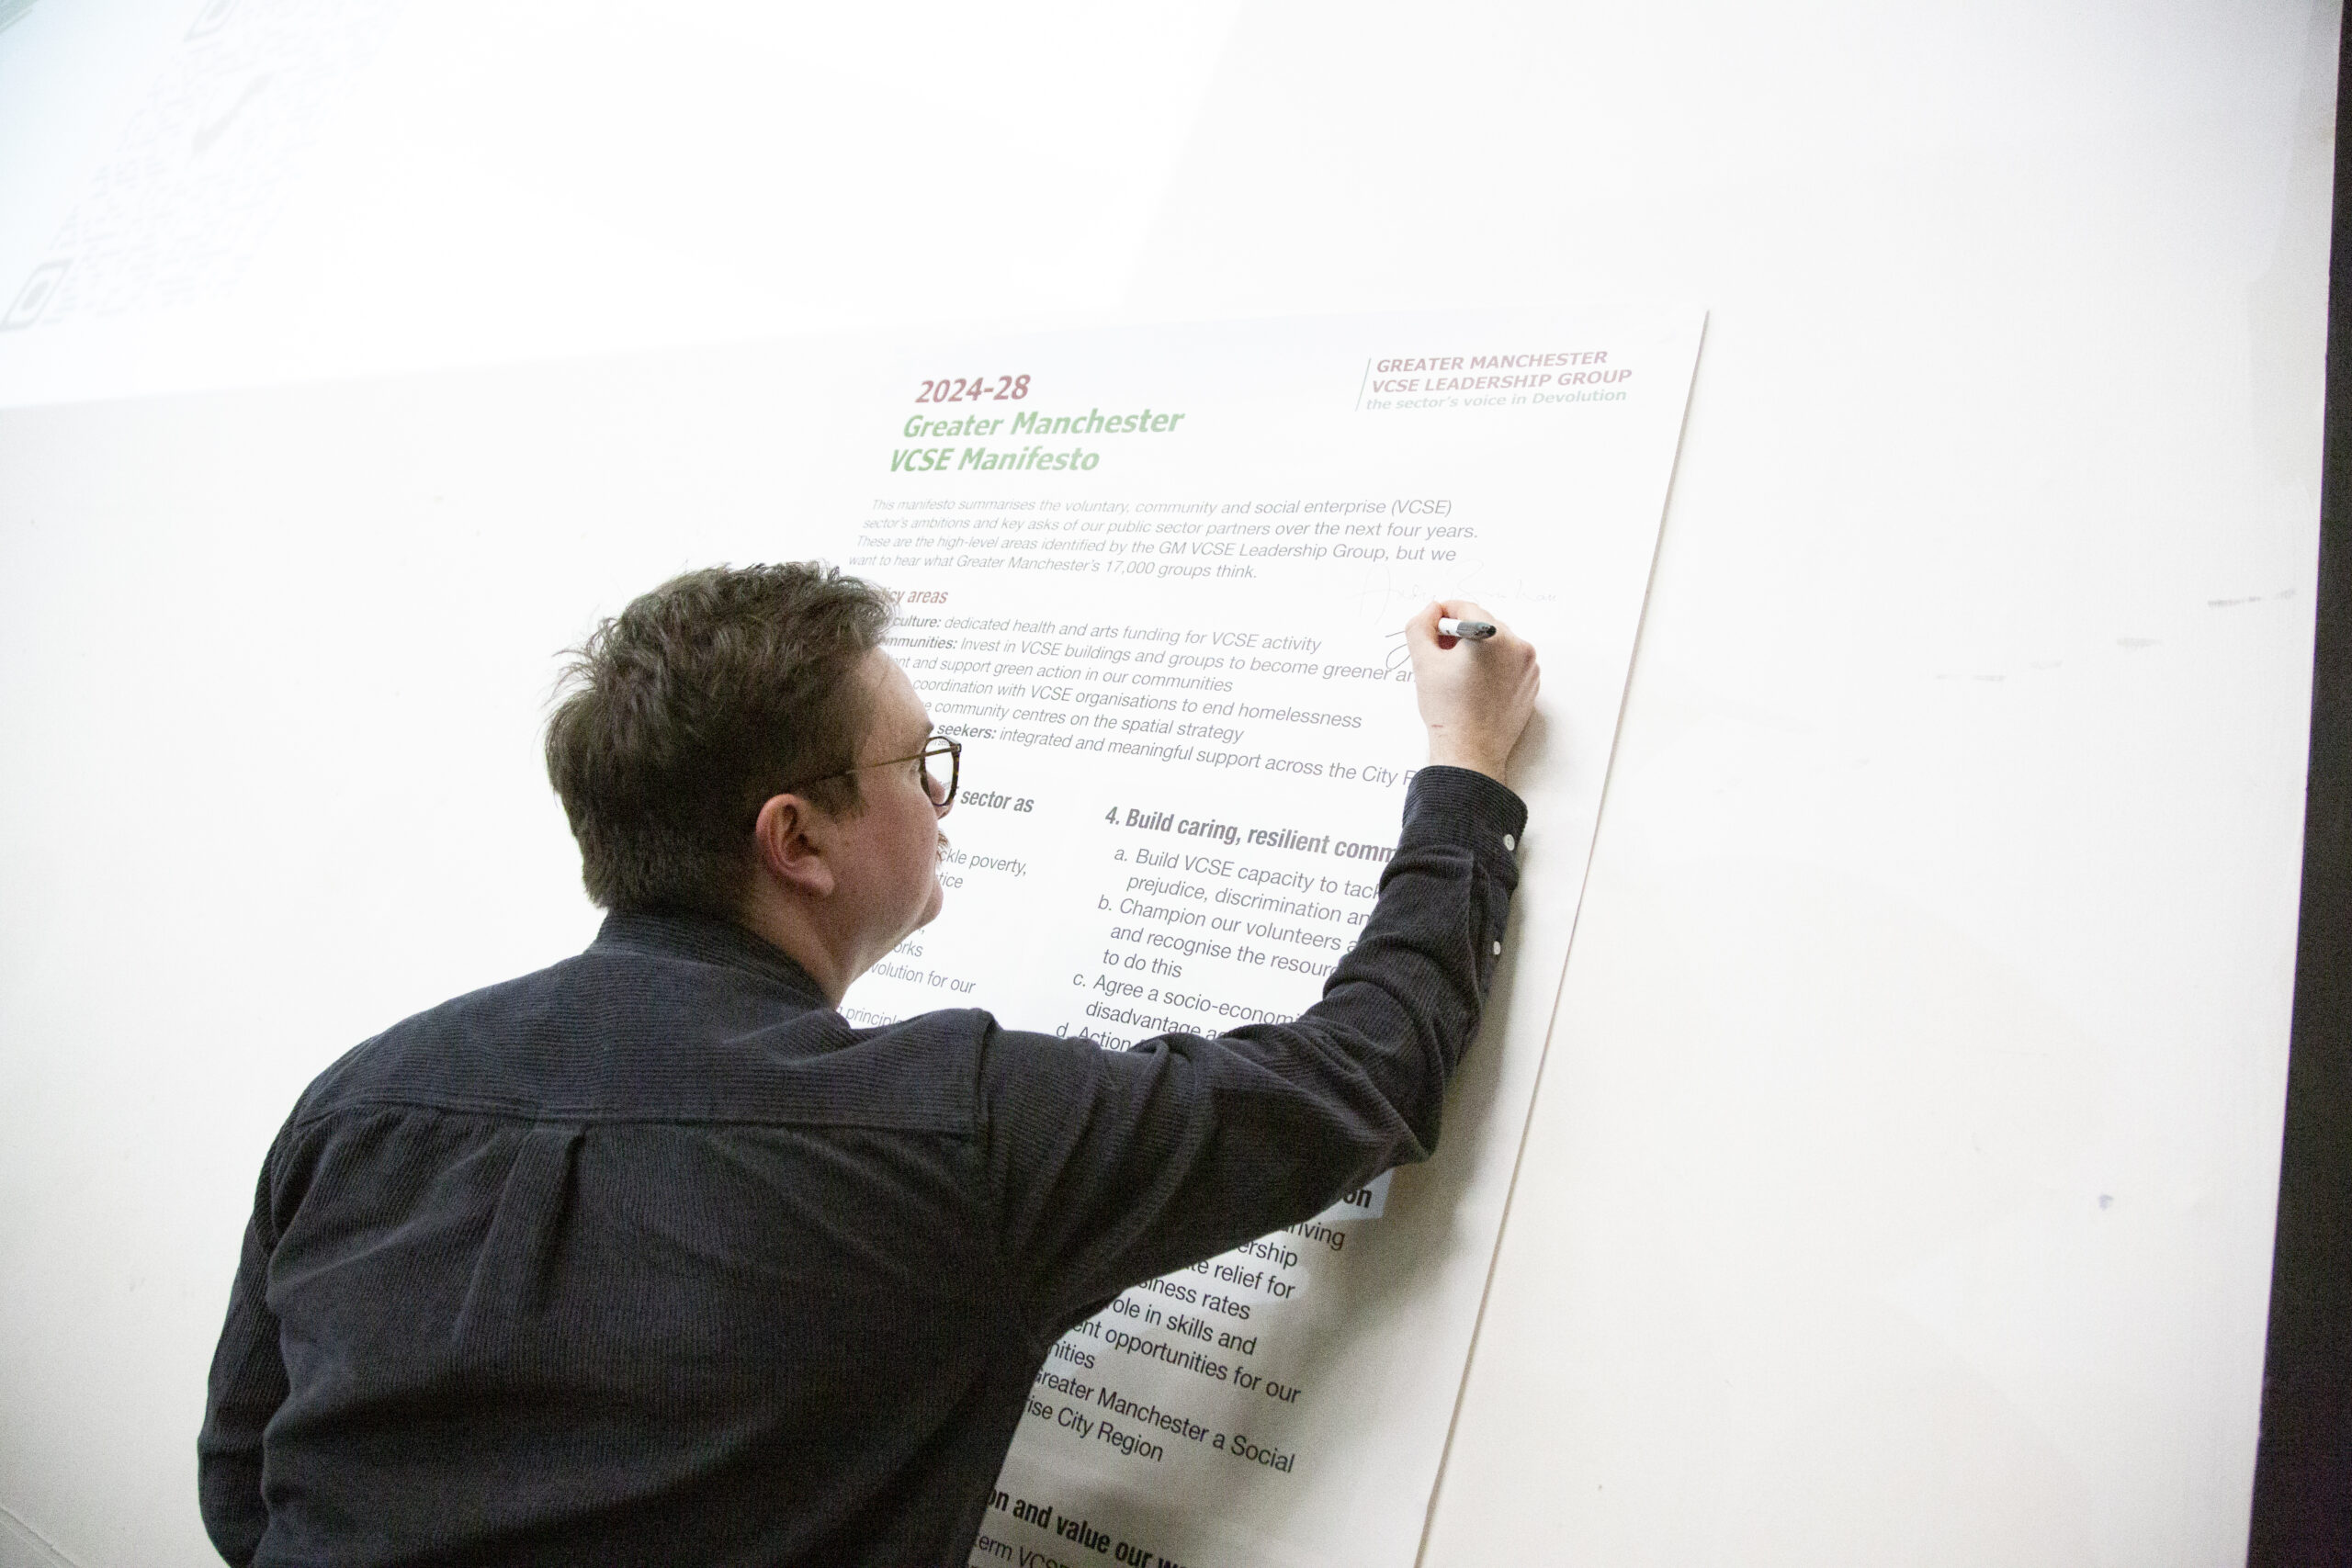 2024-28
Greater Manchester
VCSE Manifesto
GREATER MANCHESTER
VCSE LEADERSHIP GROUP
the sector's voice in Devolution
This manifesto summarises the voluntary, community and social enterprise (VCSE)
sector's ambitions and key asks of our public sector partners over the next four years.
These are the high-level areas identified by the GM VCSE Leadership Group, but we
want to hear what Greater Manchester's 17,000 groups think.
areas
culture: dedicated health and arts funding for VCSE activity
Invest in VCSE buildings and groups to become greener
and support green action in our communities
coordination with VCSE organisations to end homelessness
community centres on the spatial strategy
seekers: integrated and meaningful support across the City
sector as
poverty,
for our
4. Build caring, resilient
a. Build VCSE capacity to
prejudice, discrimination
b. Champion our volunteers
and recognise the
to do this
c. Agree a
disadvantage
d. Action
relief for
rates
in skills and
opportunities for our
Greater Manchester a Social
City Region
and value our
VCSE